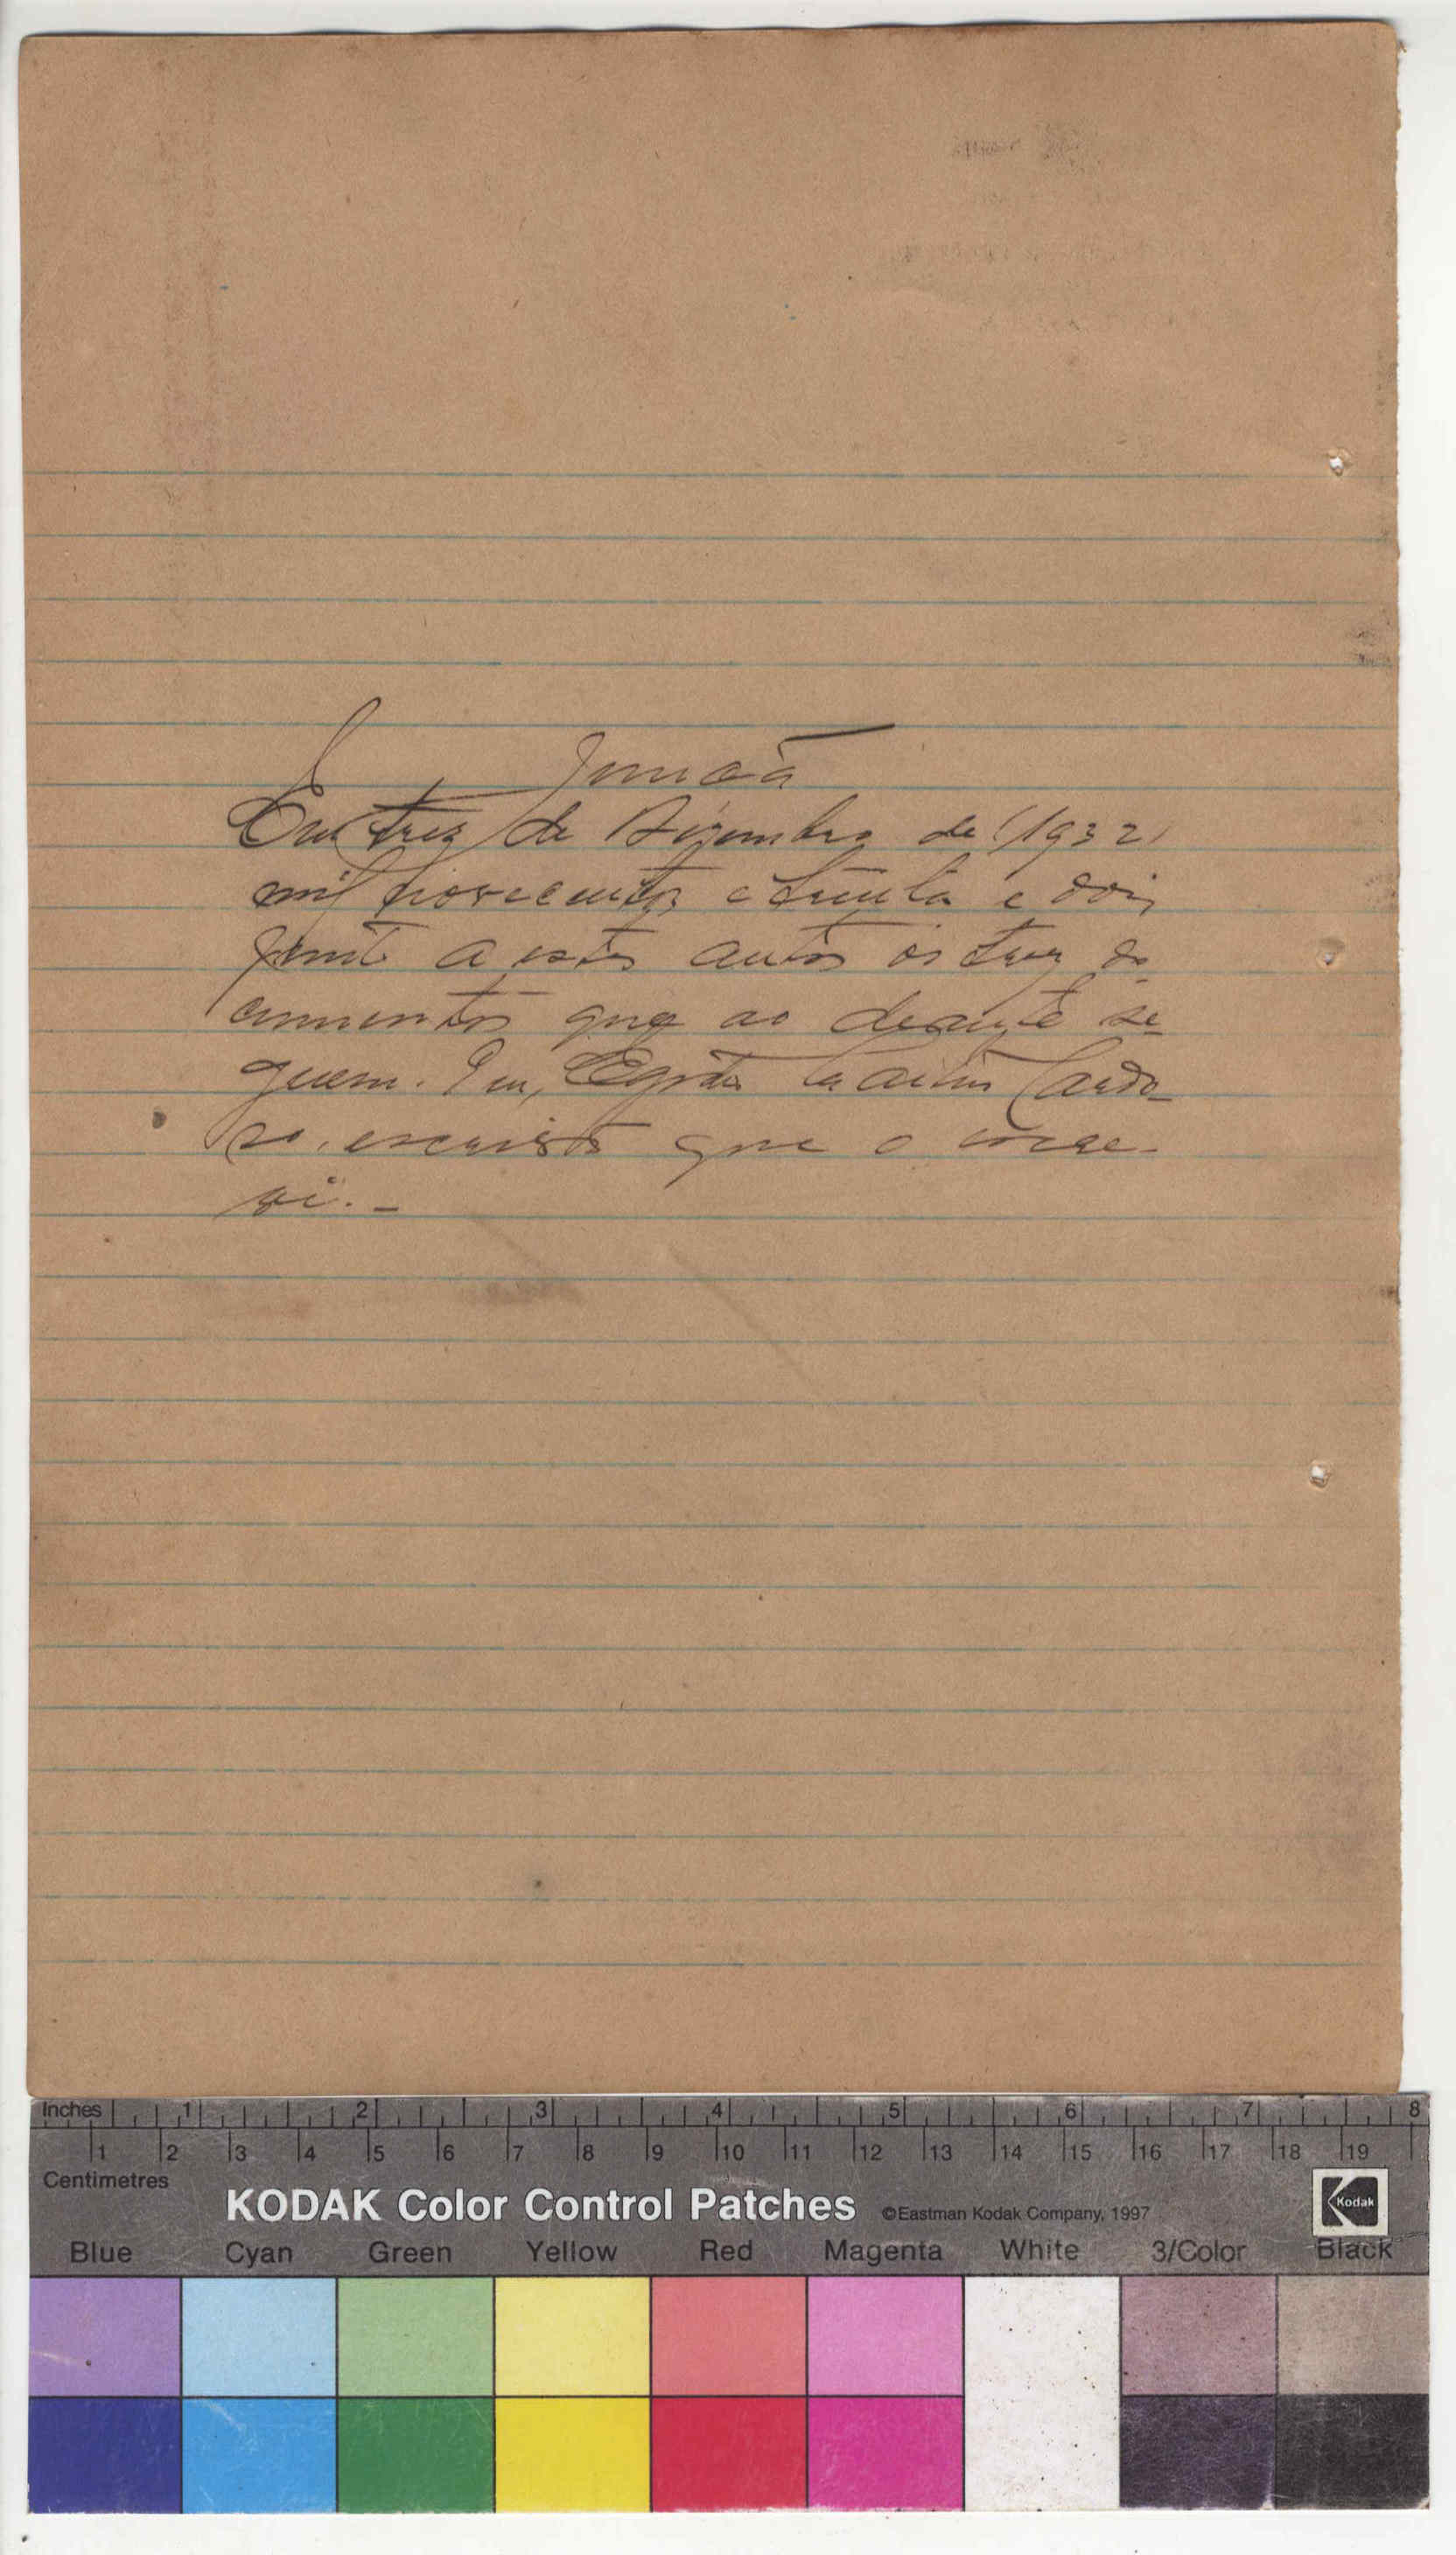 Juntada
Em tres de Dezembro de (1932)
mil novecentos e trinta e dois
junto a estes autos os tres do
cumentos que ao deante se
guem. Eu, Cardo-
so, escrivão que o escre-
vi. -
Inches 1 2 3 4 5 6 7 8
1 2 3 4 5 6 7 8 9 10 11 12 13 14 15 16 17 18 19
Centimetres
KODAK Color Control Patches ©Eastman Kodak Company, 1997 Kodak
Blue Cyan Green Yellow Red Magenta White 3/Color Black